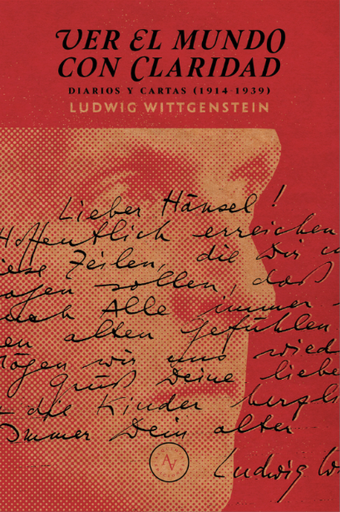 VER EL MUNDO
CON CLARIDAD
DIARIOS Y CARTAS (1914 1939)
LUDWIG WITTGENSTEIN
Lieber Hänsel!
Hoffentlich erreichen
diese Zeilen, die Dir
sagen sollen, daß
Alle immer
alten Gefühlen
Mögen wir uns wied
Grüß Deine liebe
die Kinder herzli
Immer Dein alter
Ludwig